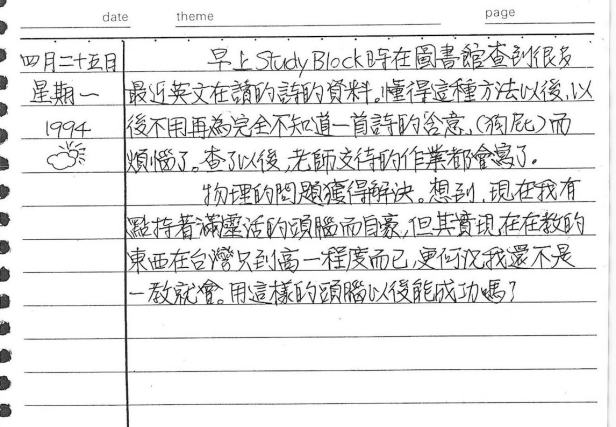 date theme page
四月二十五日
星期一
1994
早上Study Block時在圖書館查到很多
最近英文在讀的詩的資料。懂得這種方法以後，以
後不用再為完全不知道一首詩的含意，(狗屁)而
煩惱了。查了以後，老師交待的作業都會寫了。
物理的問題獲得解決。想到，現在我有
點持著滿靈活的頭腦而自豪，但其實現在在教的
東西在台灣只到高一程度而已，更何況我還不是
一教就會。用這樣的頭腦以後能成功嗎？